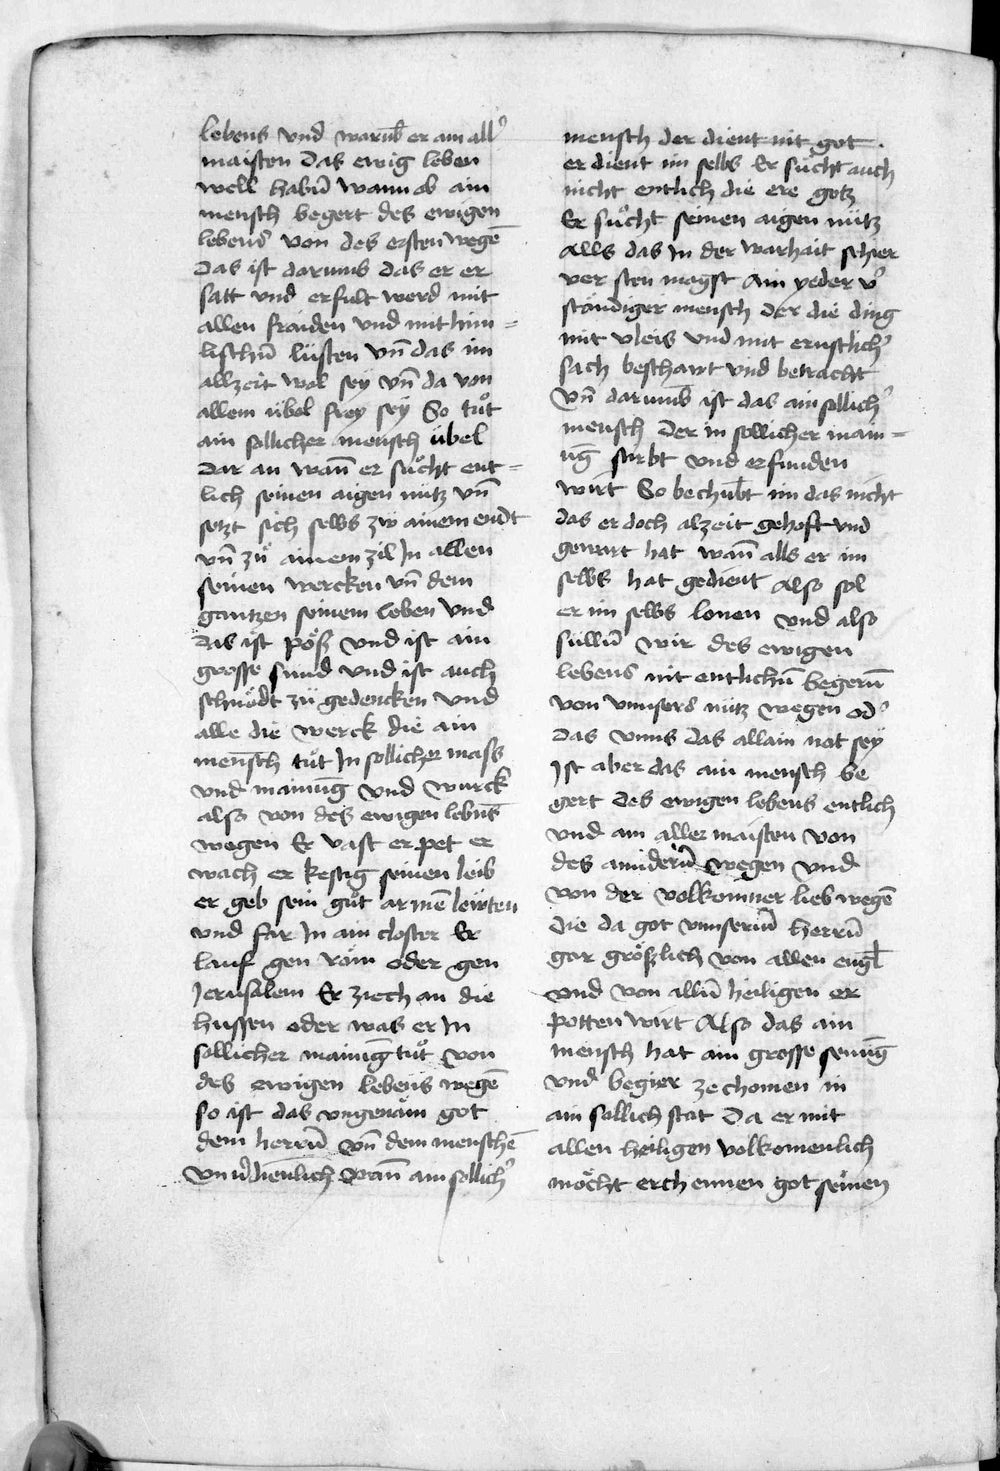 lebens vnd warub̄ er am all᾽
maisten das ewig leben
well habn̄ wann ob ain
mensch begert des ewigen
lebens von des ersten wegē
das ist darumb das er er
satt vnd erfult werd mit
allen fraiden vnd mit him=
lischn̄ lüsten vn̄ das im
allzeit wol sey vn̄ da von
allem übel frey sey So tuͦt
ain sollicher mensch übel
dar an wan̄ er suͦcht ent=
lich seinen aigen nutz vn̄
setzt sich selbs zw ainem endt
vn̄ zuͦ ainem zil In allen
seinen wercken vn̄ dem
gantzen seinem leben vnd
das ist poͤß vnd ist ain
grosse sund vnd ist auch
schnoͤdt zü gedencken vnd
alle die werck die ain
mensch tuͦt In sollicher mass
vnd mainūg vnd wurck
also von des ewigen lebn̄s
wegen Er vast er pet er
wach er kestig seinen leib
er geb sein guͦt armē lewten
vnd far In ain closter Er
lauf gen roͤm oder gen
Jerusalem Er ziech an die
hussen oder was er In
sollicher mainūg tuͦt von
des ewigen lebens wegē
so ist das vngenaͤm got
dem herrn̄ vn̄ dem menschē
vnu᾽dienlich wan̄ ain sollich᾽
mensch der dient nit got .
er dient im selbs Er suͦcht auch
nicht entlich die ere gotz
Er suͦcht seinen aigen nütz
Alls das In der warhait schier
ver sten magst Ain yeder v᾽
ständiger mensch der die ding
mit vleis vnd mit ernstlich᾽
sach beschawt vnd betracht
Vn̄ darumb ist das ain sollich᾽
mensch der in sollicher main=
ūg stirbt vnd erfunden
wirt So bechūbt im das nicht
das er doch alzeit gehoft vnd
gewart hat wan̄ alls er im
selbs hat gedient Also sol
er im selbs lonen vnd also
sülln̄ wir des ewigen
lebens nit entlichn̄ begern̄
von vnnsers nutz wegen od᾽
das vnns das allain not sey
Ist aber das ain mensch be
gert des ewigen lebens entlich
vnd am aller maisten von
des anndern̄ wegen vnd
von der volkomner lieb wegē
die da got vnnserm̄ herrn̄
gar groͤßlich von allen engl̄
vnd von alln̄ heiligen er
potten wirt Also das ain
mensch hat ain grosse senūg
vnd begier ze chomen in
ain sollich stat Da er mit
allen heiligen volkomenlich
moͤcht erchennen got seinen